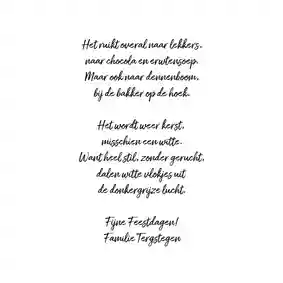 Het ruikt overal naar lekkers,
naar chocola en erwtensoep.
Maar ook naar dennenboom,
bij de bakker op de hoek.

Het wordt weer kerst,
misschien een witte.
Want heel stil, zonder gerucht,
dalen witte vlokjes uit
de donkergrijze lucht.

Fijne Feestdagen!
Familie Tergstegen